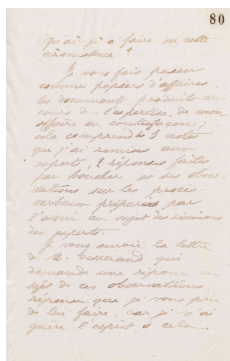 80
Qu'ai-je à faire en cette
circonstance ?
Je vous fais passer
comme papiers d'affaires
les documents produits au
cours de l'expertise, de mon
affaire en
cela comprend 3 notes
que j'ai remises aux
experts, 2 réponses faites
par Boucher ses obser-
vations sur les procès-
verbaux préparés par
l'avoué au sujet des réunions
des experts.
Je vous envoie la lettre
de M. qui
demande une réponse au
sujet de ces observations,
réponse que je vous prie
de lui faire, car je n'ai
guère l'esprit à cela